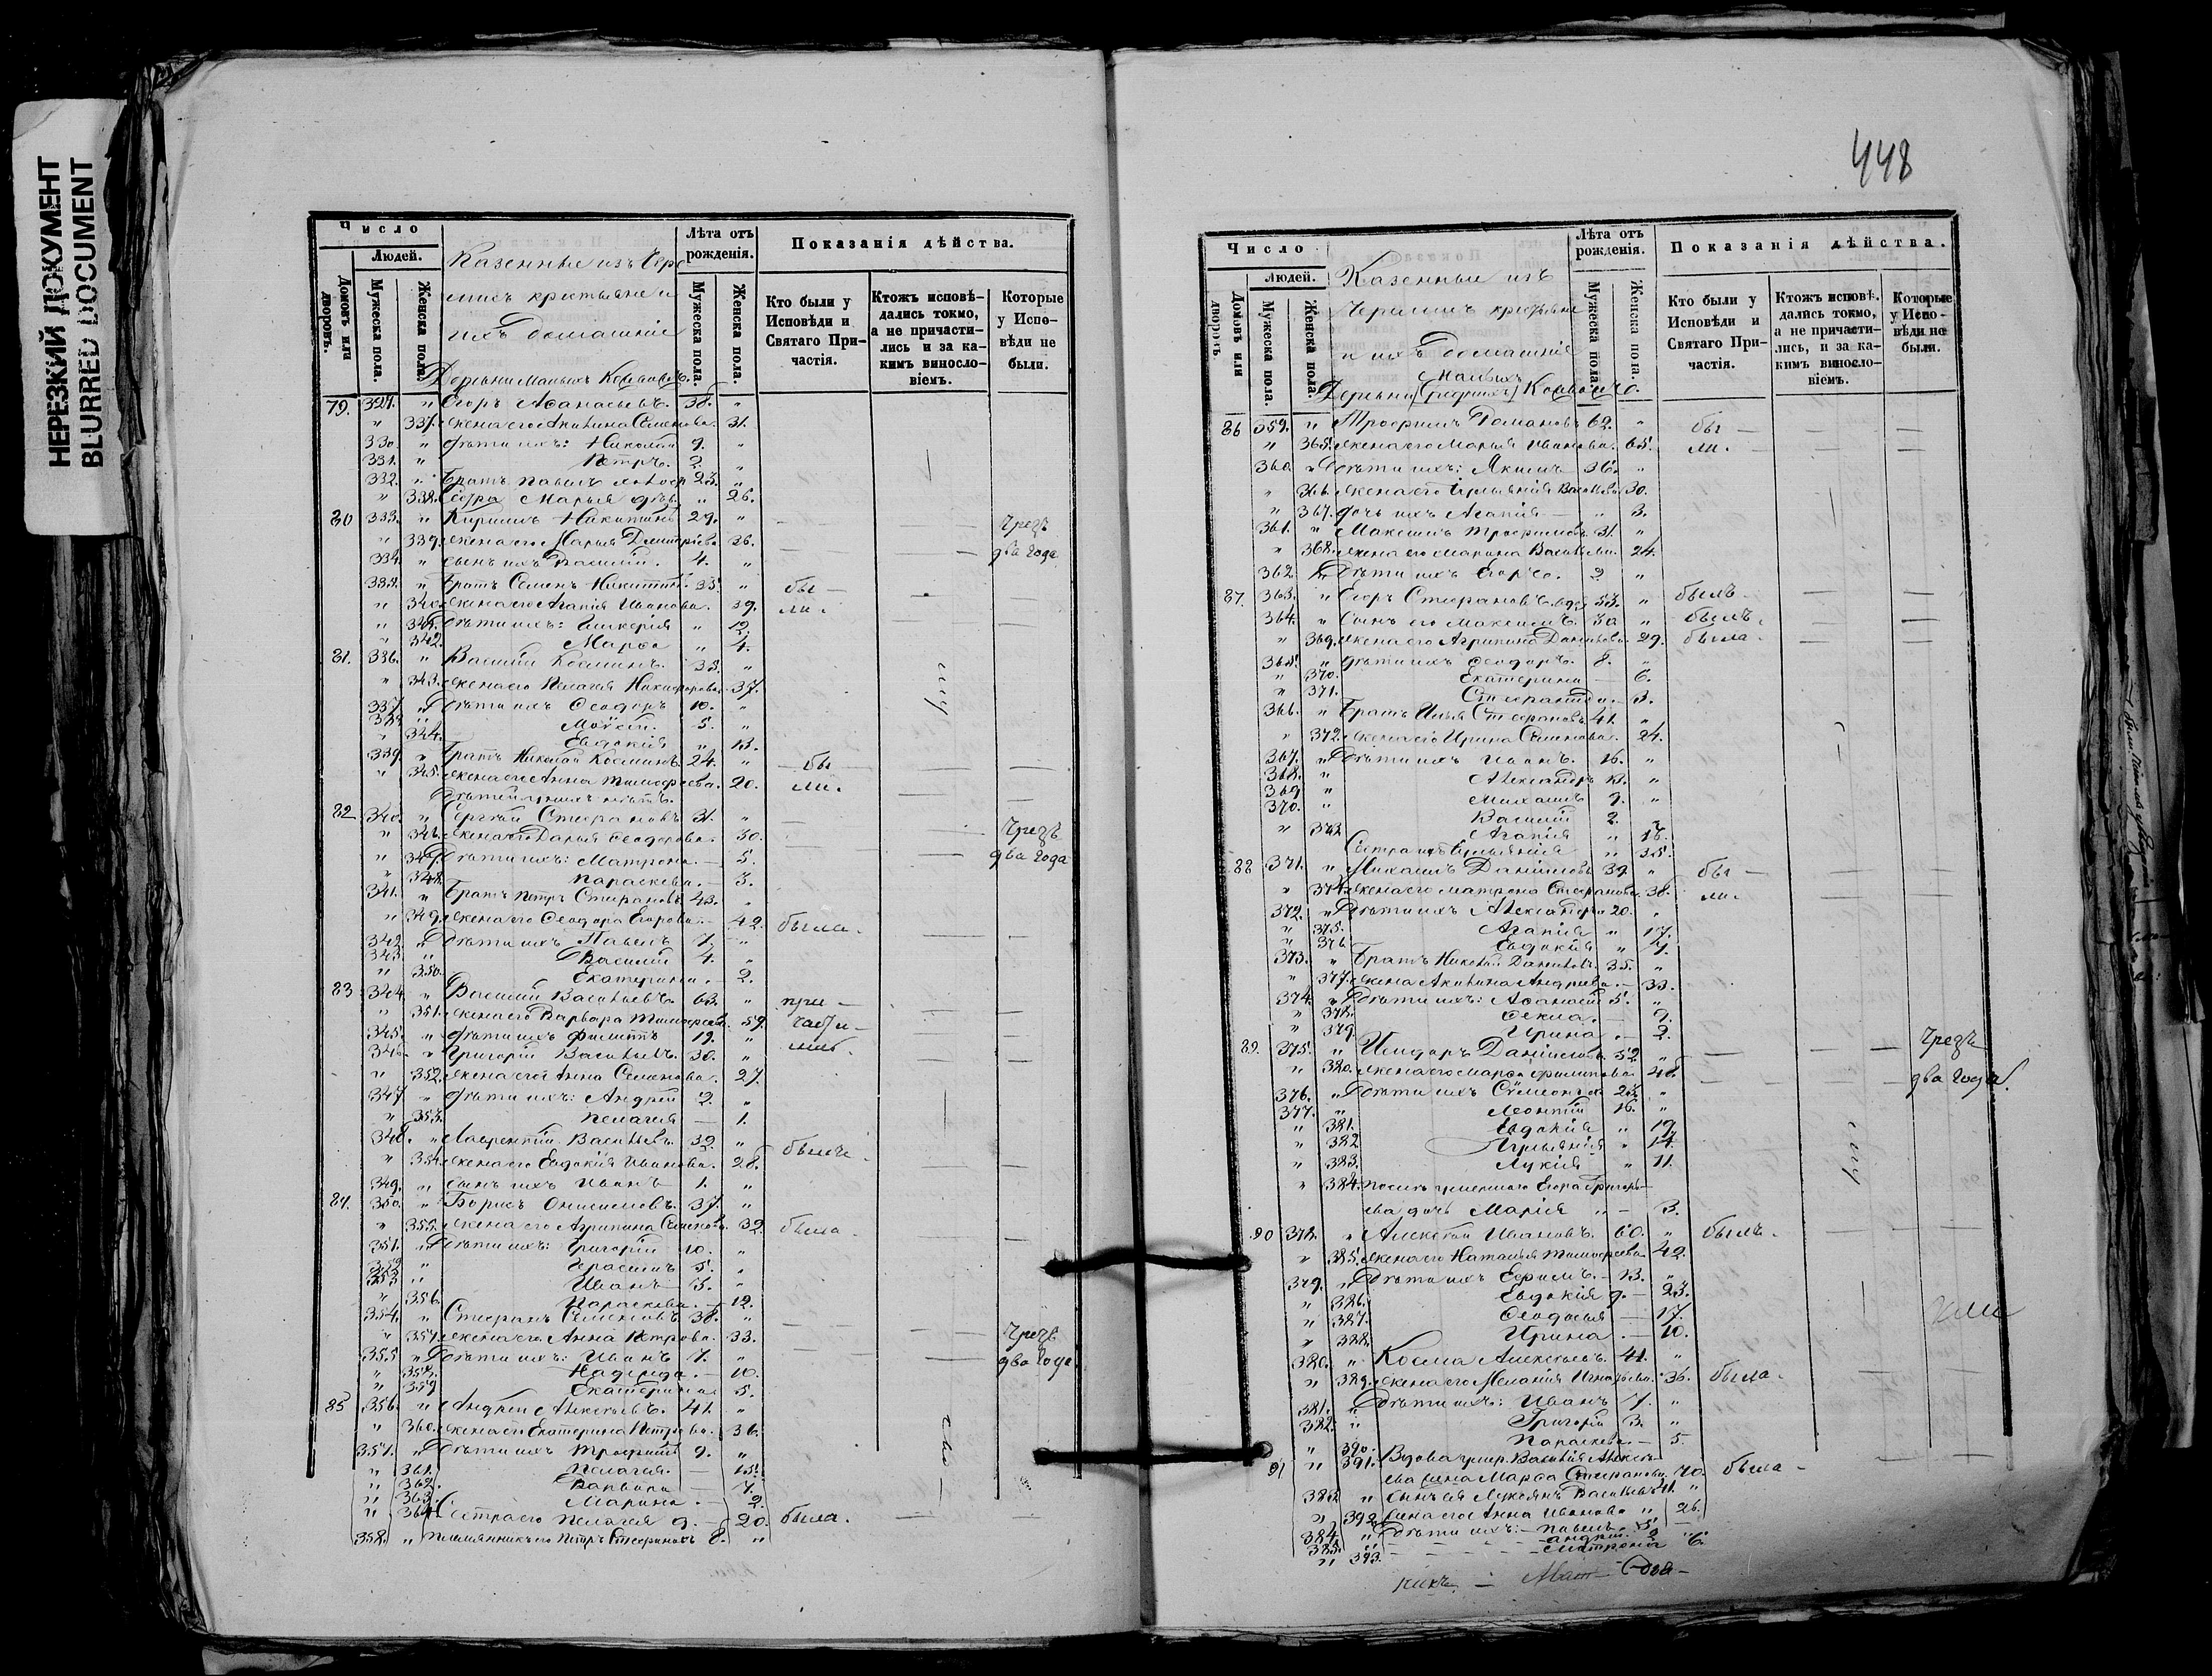 НЕРЕЗКИЙ ДОКУМЕНТ
BLURRED DOCUMENT
Число
Людей.
Домовъ или дворовъ.
Мужеска пола.
Женска пола.
Казенные изъ Чере
мисъ крестьяне и
ихъ домашніе
Деревни Малыхъ
Лѣта отъ рожденія.
Мужеска пола.
Женска пола.
Показанія дѣйства.
Кто были у Исповѣди и Святаго Причастія.
Ктожъ исповѣдались токмо, а не причастились и за какимъ винословіемъ.
Которые у Исповѣди не были.
79. 329. " Егоръ Аѳанасьевъ. 38. "
" 337. жена его Акилина Семенова. 31.
330. " дѣти ихъ: Николай 9. "
331. " Петръ. 2. "
332. " Братъ Павелъ 23. "
" 338. Сестра Марья " 26.
80 333. " Кирилъ Никитинъ 29. " — — чрезъ
" 339. жена его Марья Димитріева. 26. — — два года
334. " сынъ ихъ Василій. 4. "
335. " Братъ Семенъ Никитинъ 35. " бы — —
" 340. жена его Агапія Иванова. 39. ли. — —
" 341. Дѣти ихъ: Гликерія " 12.
" 342. Марѳа " 4.
81. 336. " Василій Косминъ. 38. "
" 343. жена его Пелагія Никифорова. 37.
337. " Дѣти ихъ Ѳеодоръ 10. "
338. " Моѵсей. 5. "
" 344. Евдокія " 13.
339. " Братъ Николай Косминъ. 24. " бы — —
" 345. жена его Анна Тимофеева. 20. ли. — —
Дѣтей у нихъ нѣтъ.
82 340. " Сергѣй Стефановъ 31. " — — чрезъ
" 346. жена его Дарья Ѳеодорова. 30. — — два года
" 347. Дѣти ихъ: Матрона. — 5.
" 348. Параскева. — 3.
341. " Братъ Петръ Стефановъ 43. "
" 349. жена его Ѳеодора Егорова. — 42. была. — —
342. " Дѣти ихъ Павелъ 7. "
343. " Василій 4. "
" 350. Екатерина. 2.
83 344. " Василій Васильевъ. 63. " при — —
" 351. жена его Варвара Тимофеева. 59. части — —
345. " дѣти ихъ Филиппъ 19. " лись. — —
346. " Григорій Васильевъ. 30. "
" 352. жена его Анна Семенова. 27.
347 " дѣти ихъ: Андрей 2. "
" 353. Пелагія — 1.
348. " Лаврентій Васильевъ. 32. "
" 354. жена его Евдокія Иванова. 28. —
349. " сынъ ихъ Иванъ 1. "
84. 350. " Борисъ Онисимовъ. 37. "
" 355. жена его Агрипина Семенова. 32. была. —
351. " Дѣти ихъ: Григорій 10. "
352. " Герасимъ 5. "
353 " Иванъ 3. "
" 356. Параскева. — 12.
354. " Стефанъ Семеновъ 38. " — — чрезъ
" 357. жена его Анна Петрова. 33. — — два года
355 " Дѣти ихъ: Иванъ 7. "
" 358. Надежда. — 10.
" 359 Екатерина 5.
85 356. " Андрей Алексѣевъ. 41. "
" 360. жена его Екатерина Петрова. 36.
357. " Дѣти ихъ Трофимъ 9. "
" 361. Пелагія. — 15.
" 362. Варвара — 7.
" 363. Марина. — 2.
" 364. Сестра его Пелагія д. — 20. была. — —
358. " племянникъ его Петръ Стефановъ 8. "
448
Число
Людей.
Домовъ или дворовъ.
Мужеска пола.
Женска пола.
Казенные изъ
Черемисъ крестьяне
и ихъ домашніе
Малыхъ
Деревни
Лѣта отъ рожденія.
Мужеска пола.
Женска пола.
Показанія дѣйства.
Кто были у Исповѣди и Святаго Причастія.
Ктожъ исповѣдались токмо, а не причастились, и за какимъ винословіемъ.
Которые у Исповѣди не были.
86 359. " Трофимъ Романовъ 62. " бы — — —
" 365. жена его Марья Иванова. 65. ли. — — —
360. " Дѣти ихъ: Якимъ 36. "
" 366. жена его 30.
" 367. дочь ихъ Агапія — " 3.
361. " Максимъ Трофимовъ 31. "
" 368. жена его Марина Васильева. 24.
362 " Дѣти ихъ Егоръ. 2 "
87. 363. " Егоръ Стефановъ 53. " былъ — —
364. " Сынъ его Максимъ. 30 " былъ. — —
" 369. жена его Агрипина Данилова. 29. была. — —
365. " дѣти ихъ Ѳеодоръ. 8. "
" 370. Екатерина — 6.
" 371. — 3.
366. " Братъ Илья Стефановъ 41. "
" 372. жена его Ирина Семенова. 24.
367. " Дѣти ихъ Иванъ. 16. "
368. " Александръ 13. "
369 " Михаилъ 9. "
370. " Василій 2. "
" 373 Агапія " 16.
Сестра ихъ " 35.
88 371. " Михаилъ Даниловъ 39 " бы — — —
" 374. жена его Матрона Стефанова. 38. ли. — — —
372. " Дѣти ихъ Александръ 20. "
" 375. Агапія " 17.
" 376 Евдокія " 7.
373. " Братъ Николай Даниловъ. 35. "
" 377. жена Акилина Андреева. — 33.
374. " Дѣти ихъ: Аѳанасій 5. "
" 378. Ѳекла. — 9.
" 379. Ирина. — 2.
89. 375. " Исидоръ Даниловъ 52. " — — — чрезъ
" 380. жена его Марѳа Филипова. 48. — — — два года.
376. " Дѣти ихъ Сѵмеонъ 23. "
377. " Леонтій 16. "
" 381. Евдокія " 19.
" 382 " 14.
" 383. Лукія " 11.
" 384. послѣ умершаго Егора Григорь—
ева дочь Марія " — 13.
90 378. " Алексѣй Ивановъ. 60. " былъ. — —
" 385. жена его Наталья Тимофеева. 42.
379. " Дѣти ихъ Ефремъ. — 13. "
" 386. Евдокія д. — 23.
" 387. Ѳеодосья — 17.
" 388. Ирина — 10.
380. " Косма Алексѣевъ. 41. "
" 389. жена его Меланія Игнатьева. 36. была. — —
381. " Дѣти ихъ: Иванъ 7. "
382. " Григорій 3. "
" 390. Параскева. — 5.
91 " 391. Вдова умер. Василія Алексѣ—
ева жена Марѳа Стефанова. 70. была — — —
383 " сынъ ея Лукіянъ Васильевъ "
" 392. жена его Анна Иванова " 26.
384. " Дѣти ихъ: Павелъ. 5. —
385. " Андрей. 2 "
" 393. Матрона 6.